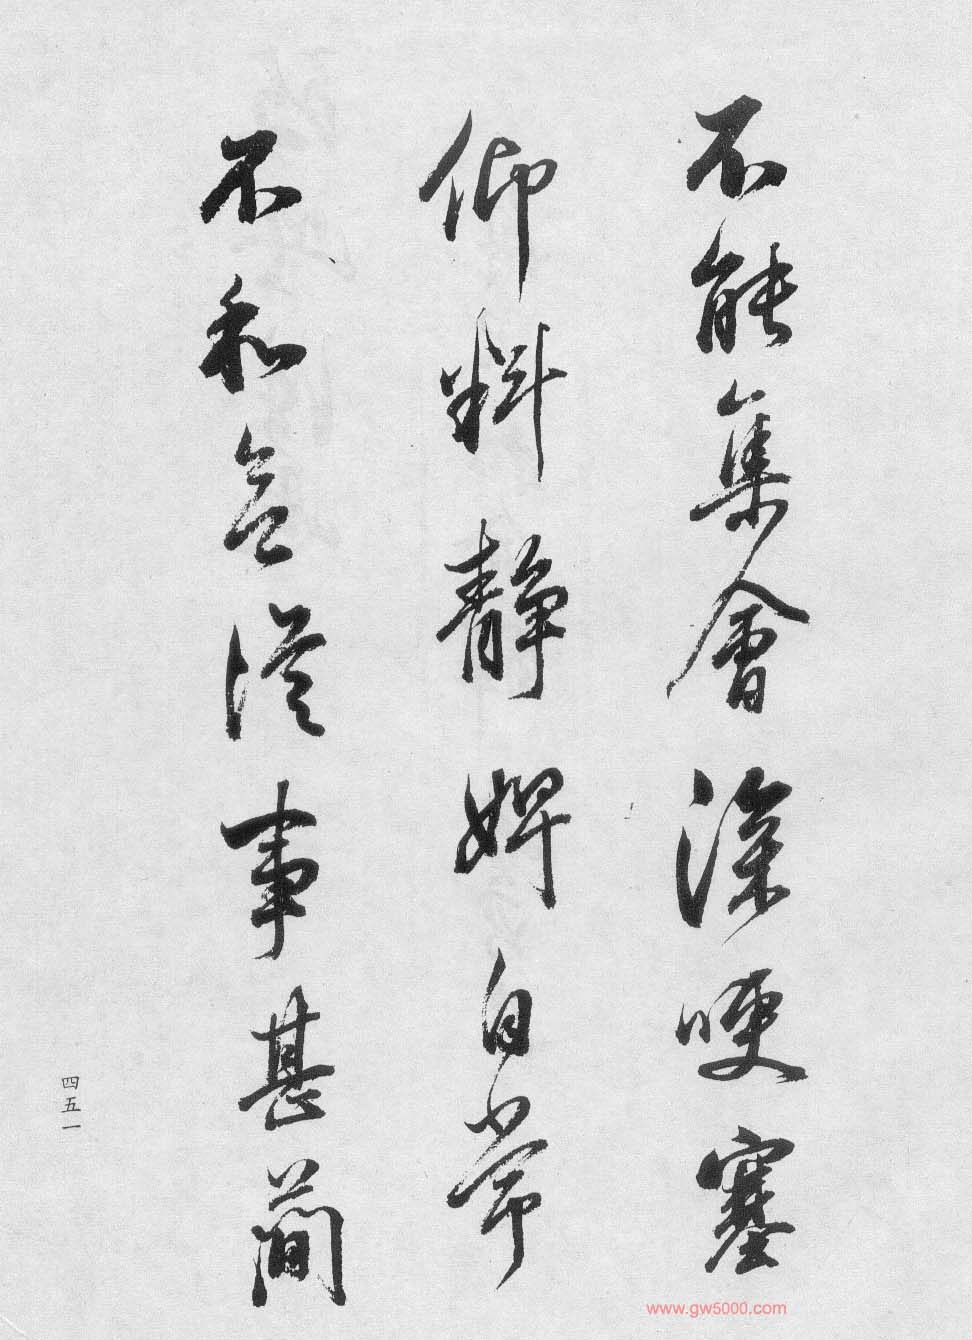 不能集會深哽塞
仰料靜婢自常
不和從事甚簡
四五一
www.gw5000.com